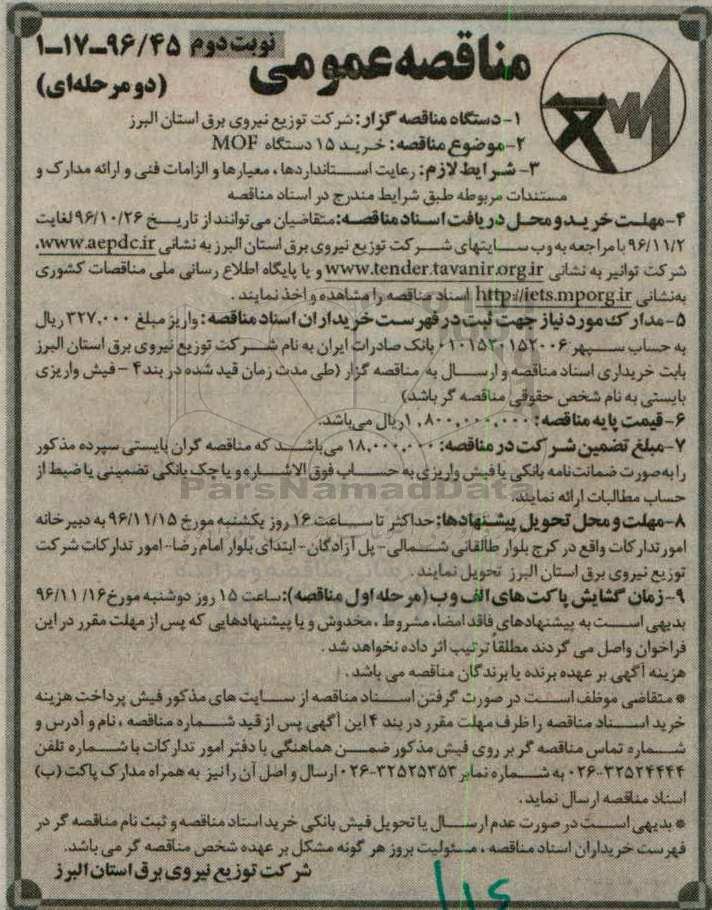 مناقصه عمومی نوبت دوم ۱-۱۷-۹۶/۴۵
(دو مرحله‌ای)
۱- دستگاه مناقصه گزار: شرکت توزیع نیروی برق استان البرز
۲- موضوع مناقصه: خرید ۱۵ دستگاه MOF
۳- شرایط لازم: رعایت استانداردها، معیارها و الزامات فنی و ارائه مدارک و
مستندات مربوطه طبق شرایط مندرج در اسناد مناقصه
۴- مهلت خرید و محل دریافت اسناد مناقصه: متقاضیان می‌توانند از تاریخ ۹۶/۱۰/۲۶ لغایت
۹۶/۱۱/۲ با مراجعه به وب سایتهای شرکت توزیع نیروی برق استان البرز به نشانی www.aepdc.ir،
شرکت توانیر به نشانی www.tender.tavanir.org.ir و یا پایگاه اطلاع رسانی ملی مناقصات کشوری
به‌نشانی http://iets.mporg.ir اسناد مناقصه را مشاهده و اخذ نمایند.
۵- مدارک مورد نیاز جهت ثبت در فهرست خریداران اسناد مناقصه: واریز مبلغ ۳۲۷,۰۰۰ ریال
به حساب سپهر ۰۱۰۱۵۳۰۱۵۲۰۰۶ بانک صادرات ایران به نام شرکت توزیع نیروی برق استان البرز
بابت خریداری اسناد مناقصه و ارسال به مناقصه گزار (طی مدت زمان قید شده در بند ۴ - فیش واریزی
بایستی به نام شخص حقوقی مناقصه گر باشد)
۶- قیمت پایه مناقصه: ۱,۸۰۰,۰۰۰,۰۰۰ ریال می‌باشد.
۷- مبلغ تضمین شرکت در مناقصه: ۱۸,۰۰۰,۰۰۰ می‌باشد که مناقصه گران بایستی سپرده مذکور
را به‌صورت ضمانت‌نامه بانکی یا فیش واریزی به حساب فوق الاشاره و یا چک بانکی تضمینی یا ضبط از
حساب مطالبات ارائه نمایند.
ParsNamadData
۸- مهلت و محل تحویل پیشنهادها: حداکثر تا ساعت ۱۶ روز یکشنبه مورخ ۹۶/۱۱/۱۵ به دبیرخانه
امور تدارکات واقع در کرج بلوار طالقانی شمالی- پل آزادگان- ابتدای بلوار امام رضا- امور تدارکات شرکت
توزیع نیروی برق استان البرز تحویل نمایند.
۹- زمان گشایش پاکت های الف و ب (مرحله اول مناقصه): ساعت ۱۵ روز دوشنبه مورخ ۹۶/۱۱/۱۶
بدیهی است به پیشنهادهای فاقد امضاء، مشروط، مخدوش و یا پیشنهادهایی که پس از مهلت مقرر در این
فراخوان واصل می گردند مطلقاً ترتیب اثر داده نخواهد شد.
هزینه آگهی بر عهده برنده یا برندگان مناقصه می باشد.
* متقاضی موظف است در صورت گرفتن اسناد مناقصه از سایت های مذکور فیش پرداخت هزینه
خرید اسناد مناقصه را ظرف مهلت مقرر در بند ۴ این آگهی پس از قید شماره مناقصه، نام و آدرس و
شماره تماس مناقصه گر بر روی فیش مذکور ضمن هماهنگی با دفتر امور تدارکات با شماره تلفن
۰۲۶-۳۲۵۲۴۴۴۴ به شماره نمابر ۰۲۶-۳۲۵۲۵۳۵۳ ارسال و اصل آن را نیز به همراه مدارک پاکت (ب)
اسناد مناقصه ارسال نماید.
* بدیهی است در صورت عدم ارسال یا تحویل فیش بانکی خرید اسناد مناقصه و ثبت نام مناقصه گر در
فهرست خریداران اسناد مناقصه، مسئولیت بروز هر گونه مشکل بر عهده شخص مناقصه گر می باشد.
شرکت توزیع نیروی برق استان البرز